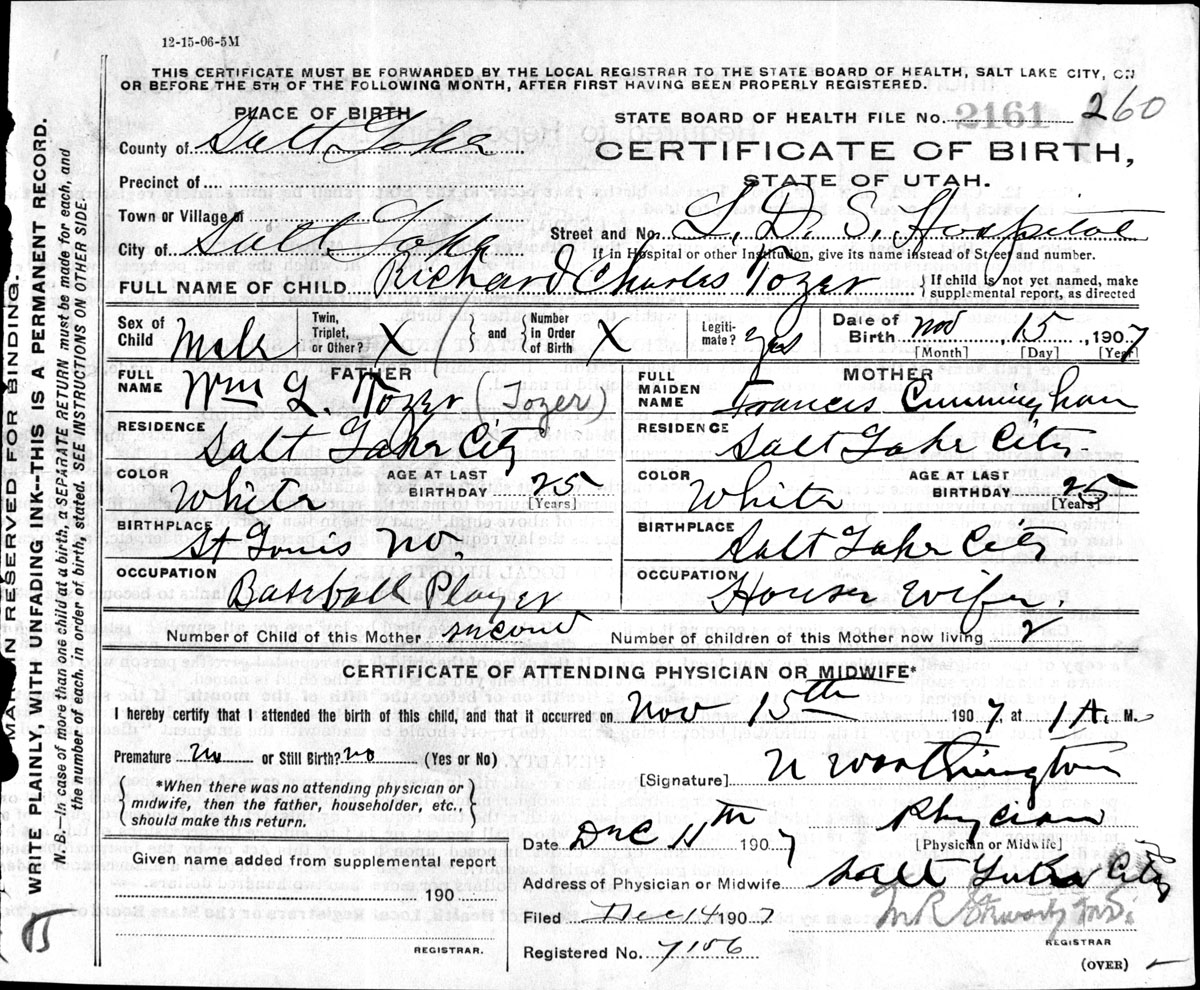 12-15-06-5M
THIS CERTIFICATE MUST BE FORWARDED BY THE LOCAL REGISTRAR TO THE STATE BOARD OF HEALTH, SALT LAKE CITY, ON
OR BEFORE THE 5TH OF THE FOLLOWING MONTH, AFTER FIRST HAVING BEEN PROPERLY REGISTERED.
PLACE OF BIRTH
STATE BOARD OF HEALTH FILE No. 2161 260
County of Salt Lake
CERTIFICATE OF BIRTH,
STATE OF UTAH.
Precinct of
Town or Village of
Street and No. L. D. S. Hospital
City of Salt Lake
If in Hospital or other Institution, give its name instead of Street and number.
FULL NAME OF CHILD. Richard Charles Tozer { If child is not yet named, make supplemental report, as directed
Sex of Child Male Twin, Triplet, or Other? X { and } Number in Order of Birth X Legitimate? yes Date of Birth Nov 15, 1907
[Month] [Day] [Year]
FATHER
FULL NAME Wm L. Tozer (Tozer)
RESIDENCE Salt Lake City
COLOR White AGE AT LAST BIRTHDAY 25 [Years]
BIRTHPLACE St Louis Mo.
OCCUPATION Baseball Player
MOTHER
FULL MAIDEN NAME Francis Cunningham
RESIDENCE Salt Lake City
COLOR White AGE AT LAST BIRTHDAY 25 [Years]
BIRTHPLACE Salt Lake City
OCCUPATION House Wife.
Number of Child of this Mother second Number of children of this Mother now living 2
CERTIFICATE OF ATTENDING PHYSICIAN OR MIDWIFE*
I hereby certify that I attended the birth of this child, and that it occurred on Nov 15th 1907, at 1 A. M.
Premature no or Still Birth? no (Yes or No)
[Signature] U Worthington
{ *When there was no attending physician or midwife, then the father, householder, etc., should make this return. }
Physician
[Physician or Midwife]
Date Dec 11th 1907
Given name added from supplemental report
190
REGISTRAR.
Address of Physician or Midwife Salt Lake City
Filed Dec 14 1907
REGISTRAR
Registered No. 7106
(OVER)
MARGIN RESERVED FOR BINDING.
WRITE PLAINLY, WITH UNFADING INK--THIS IS A PERMANENT RECORD.
N.B.—In case of more than one child at a birth, a SEPARATE RETURN must be made for each, and
the number of each, in order of birth, stated. SEE INSTRUCTIONS ON OTHER SIDE.